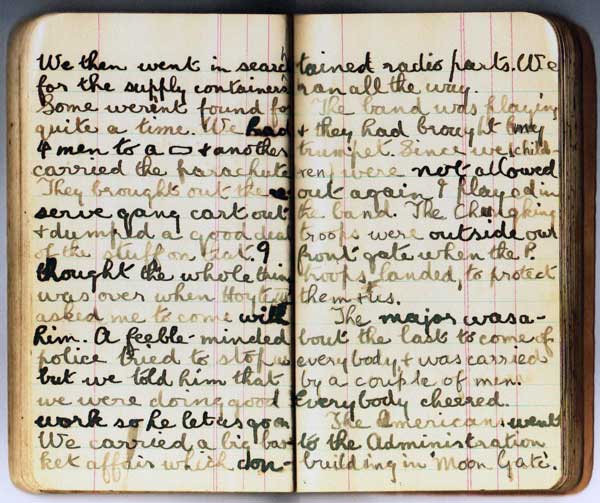 We then went in search
for the supply containers
Some weren't found for
quite a time. We had
4 men to a ▭ & another
carried the parachute
They brought out the re-
serve gang cart out
& dumped a good deal
of the stuff on that. I
thought the whole thing
was over when Hoyte
asked me to come with
him. A feeble-minded
police tried to stop us
but we told him that
we were doing good
work so he let us go on
We carried a big bas-
ket affair which con-
tained radio parts. We
ran all the way.
The band was playing
& they had brought my
trumpet. Since we (child-
ren) were not allowed
out again I played in
the band. The Chungking
troops were outside our
front gate when the P.
troops landed, to protect
them & us.
The major was a-
bout the last to come of
everybody & was carried
by a couple of men.
Everybody cheered.
The Americans went
to the Administration
building in 'Moon Gate'.